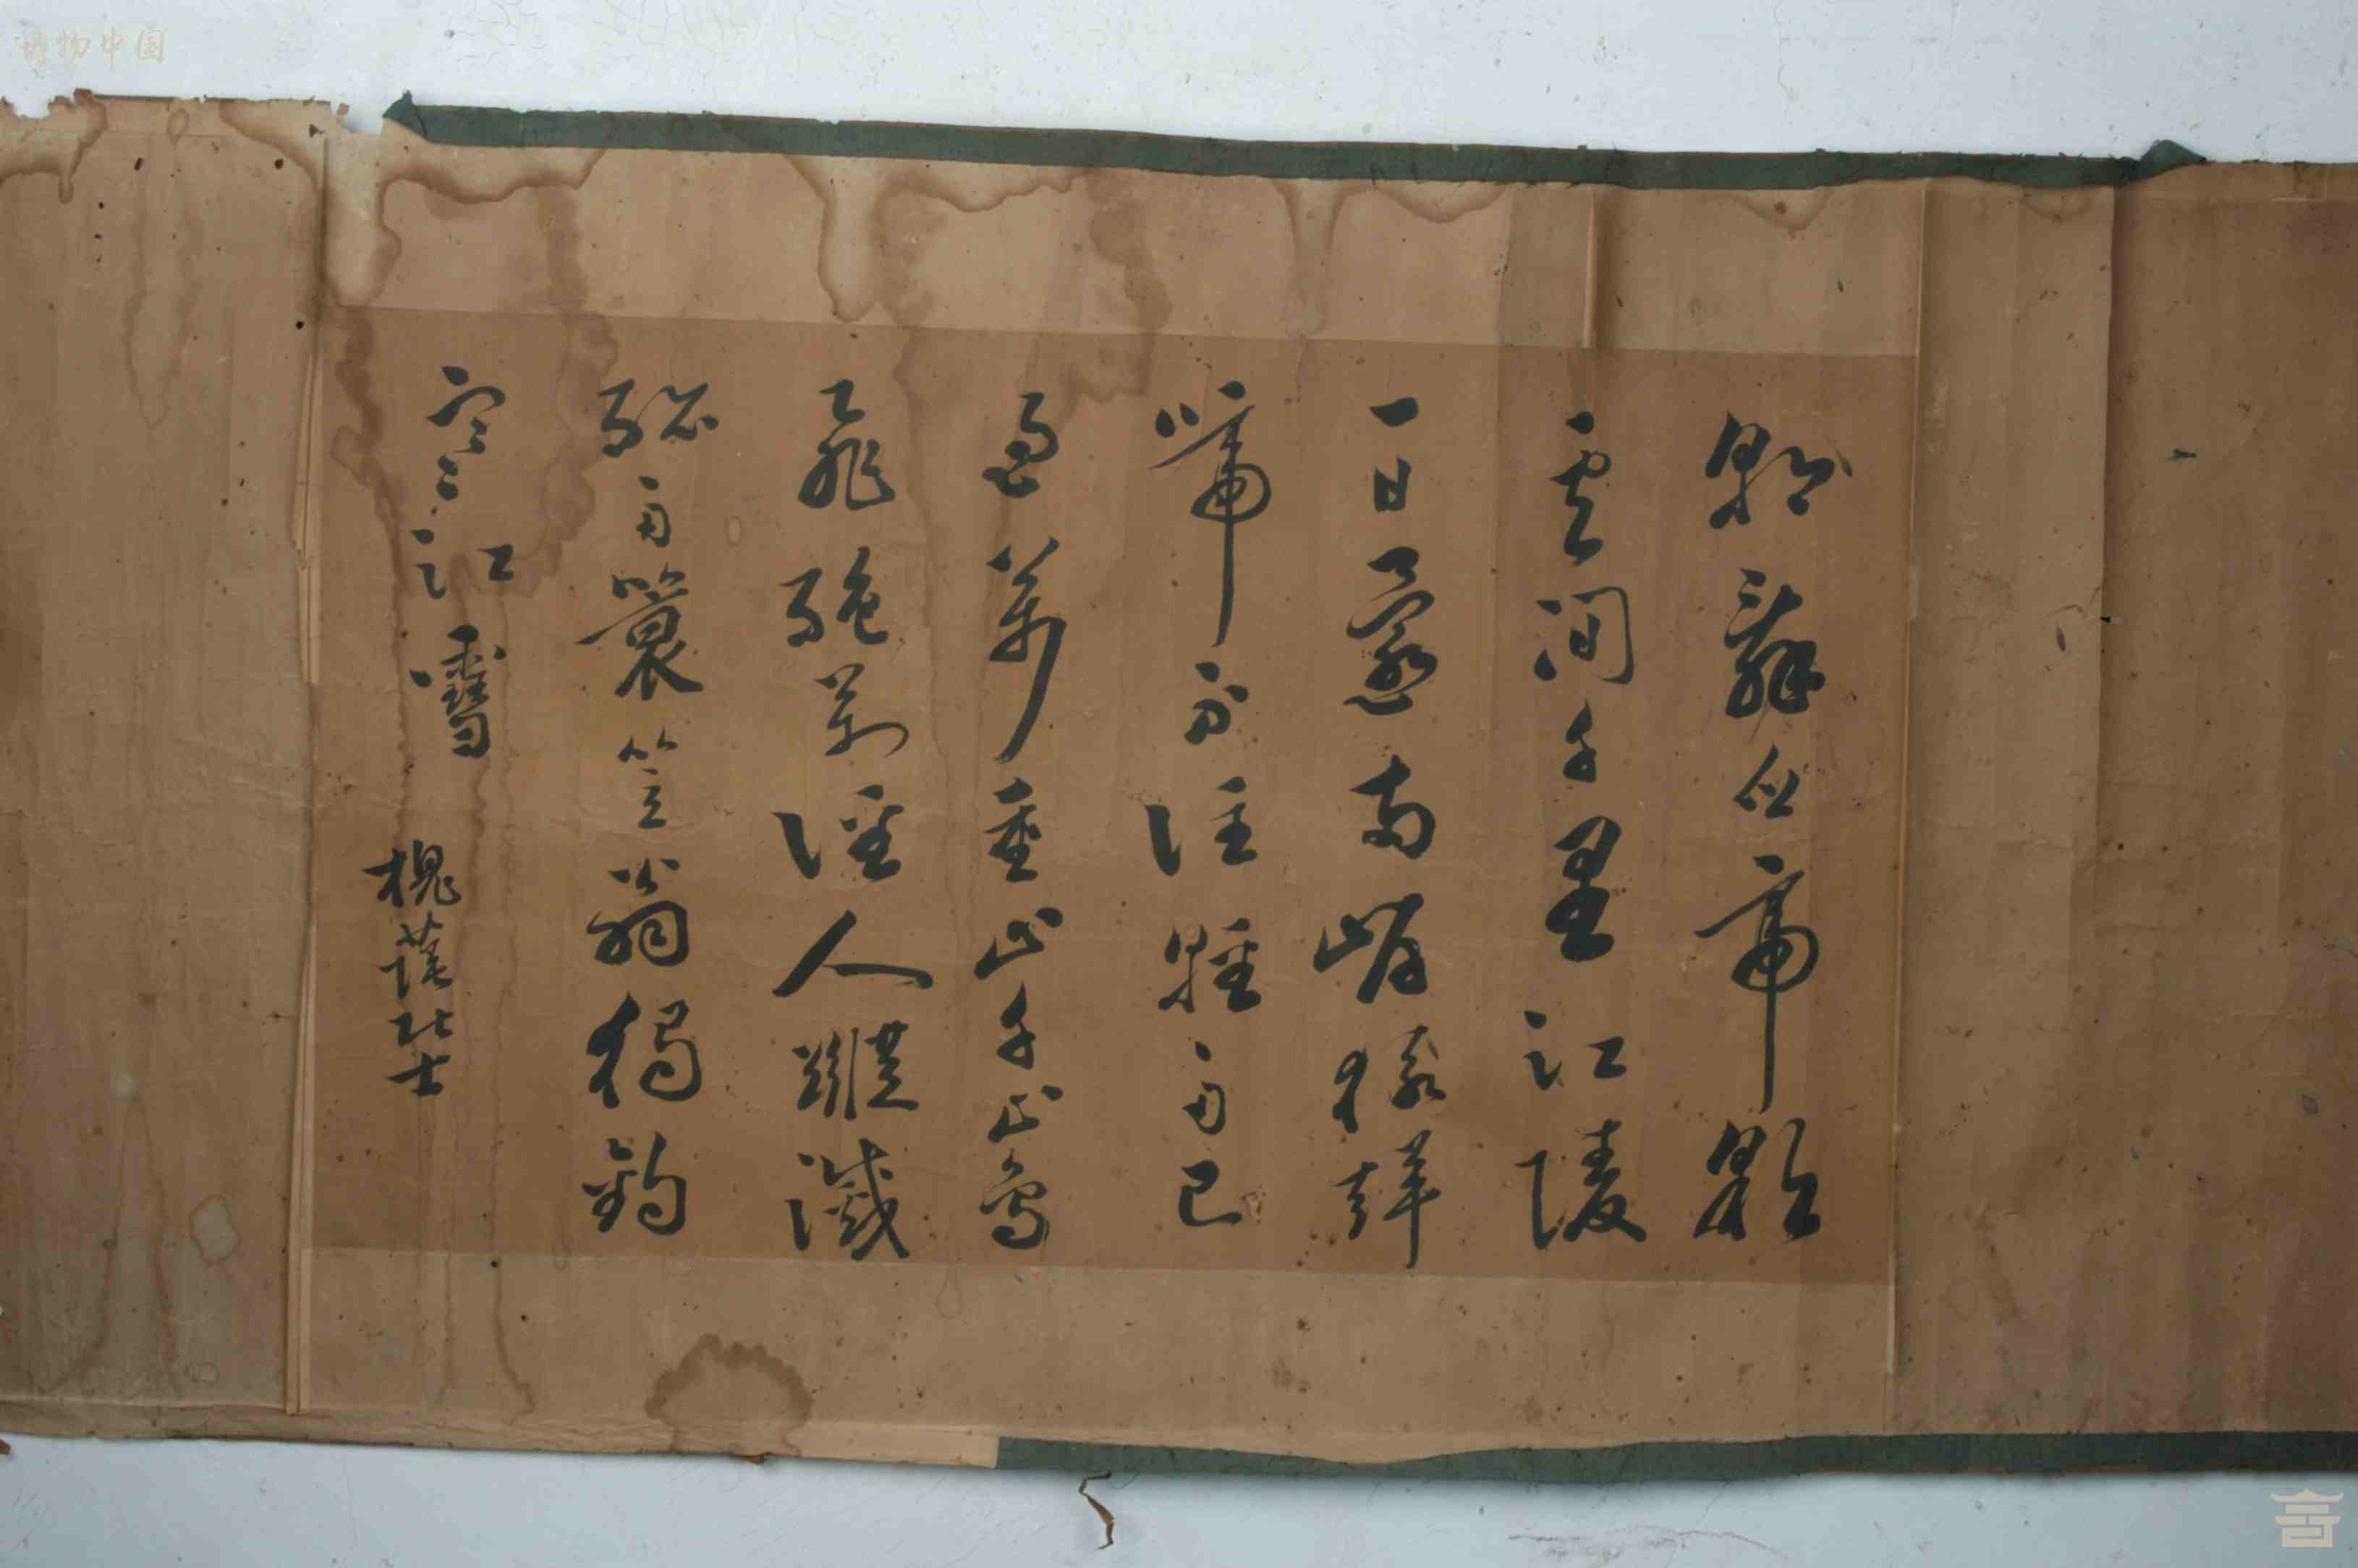 博物中国
朝辭白帝彩
雲間千里江陵
一日還兩岸猿聲
啼不住輕舟已
過萬重山千山鳥
飛絕萬徑人蹤滅
孤舟簑笠翁獨釣
寒江雪
槐蔭士